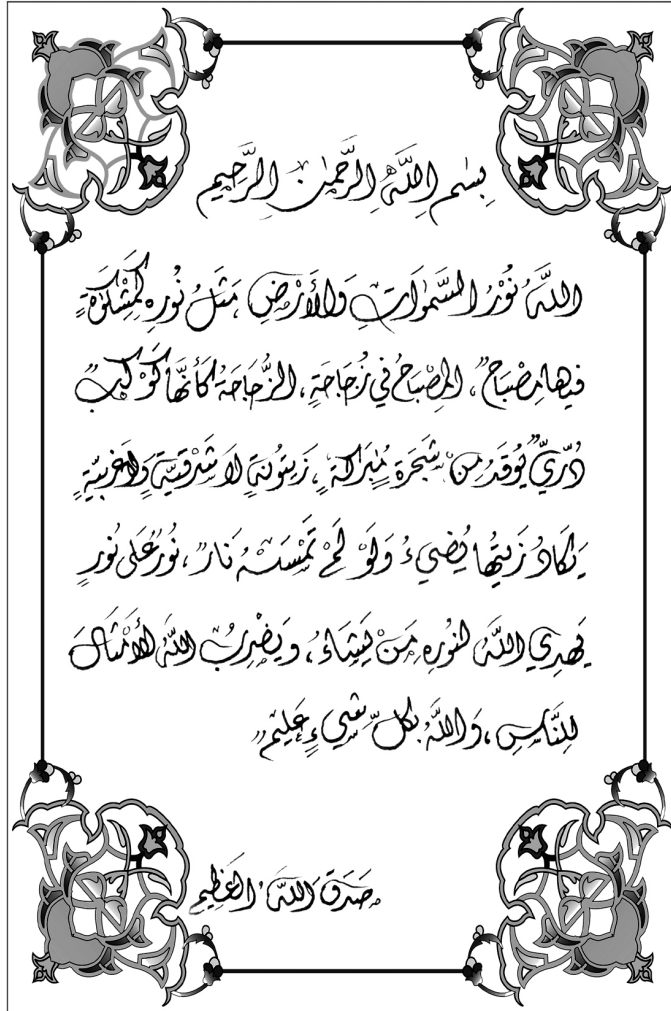 بِسْمِ اللَّهِ الرَّحْمٰنِ الرَّحِيمِ
اللَّهُ نُوْرُ السَّمٰوَاتِ وَالأَرْضِ، مَثَلُ نُورِهِ كَمِشْكَوٰةٍ
فيها مِصْبَاحٌ، المِصْبَاحُ في زُجَاجَةٍ، الزُّجَاجَةُ كَأَنَّهَا كَوْكَبٌ
دُرِّيٌّ يُوقَدُ مِنْ شَجَرَةٍ مُبَارَكَةٍ، زَيتُونَةٍ لاَ شَرْقِيَّةٍ وَلاَ غَربِيَّةٍ
يَكَادُ زَيتُهَا يُضِيءُ وَلَوْ لَمْ تَمْسَسْهُ نَارٌ، نُورٌ عَلى نُورٍ
يَهدِي اللَّهُ لنُورِهِ مَنْ يَشَاءُ، وَيَضْرِبُ اللَّهُ الأَمْثَالَ
للنَّاسِ، وَاللَّهُ بِكلِّ شيءٍ عَلِيمٌ
صَدَقَ اللَّهُ العَظِيم